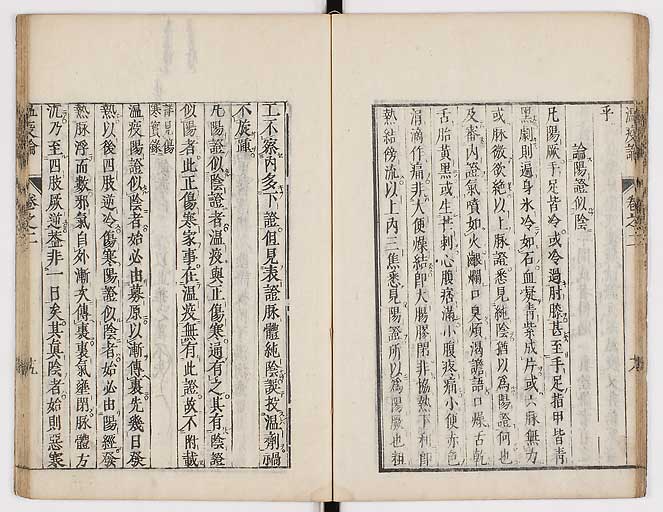 乎
論陽證似陰
凡陽厥手足皆冷或冷過肘膝甚至手足指甲皆青
黑劇則遍身氷冷如石血凝青紫成片或六脉無力
或脉微欲絶以上脉證悉見純陰猶以爲陽證何也
及審内證氣噴如火齦爛口臭煩渴譫語口燥舌乾
舌胎黄黑或生芒刺心腹痞滿小腹疼痛小便赤色
涓滴作痛非大便燥結即大腸膠閉非協熱下利即
熱結傍流以上内三焦悉見陽證所以爲陽厥也粗
温疫論
卷之二
工不察内多下證但見表證脉體純陰誤投温劑禍
不旋踵
凡陽證似陰證者温疫與正傷寒通有之其有陰證
似陽者此正傷寒家事在温疫無有此證故不附載
詳見傷
寒實錄
温疫證似陰者始必由募原以漸傳裏先幾日發
熱以後四肢逆冷傷寒陽證似陰者始必由陽經發
熱脉浮而數邪氣自外漸次傳裏裏氣壅閉脉體方
沉乃至四肢厥逆蓋非一日矣其真陰者始則惡寒
温疫論
卷之二